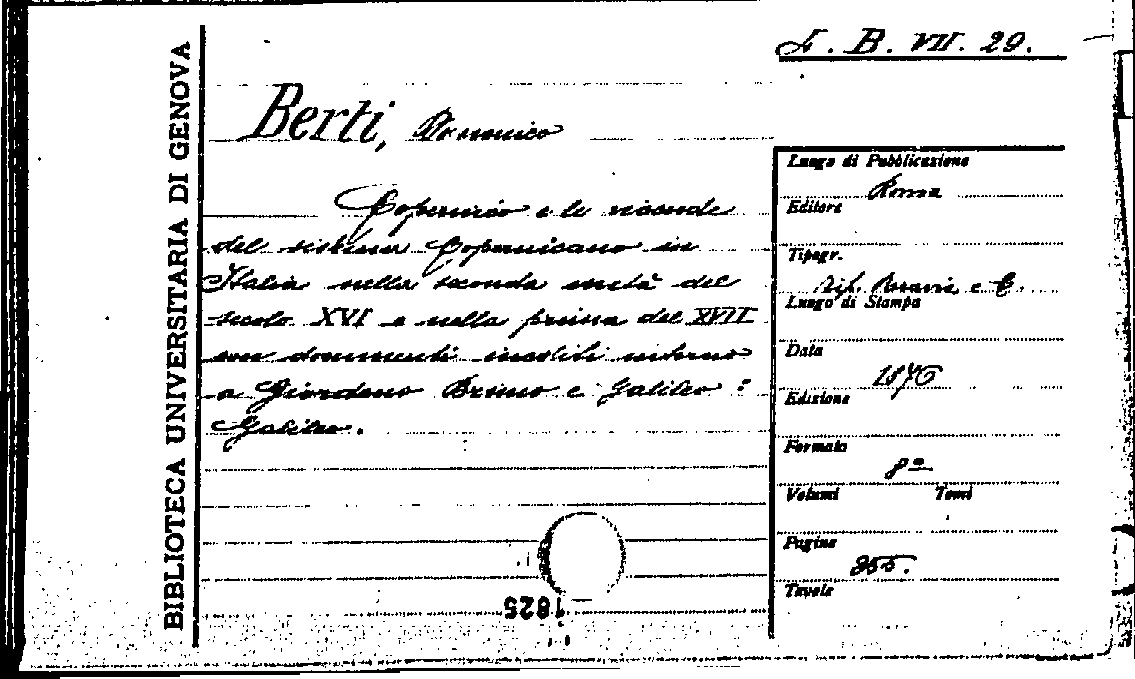 BIBLIOTECA UNIVERSITARIA DI GENOVA
L. B. VII. 29.
Berti, Domenico
Copernico e le vicende
del sistema Copernicano in
Italia nella seconda metà del
secolo XVI e nella prima del XVII
con documenti inediti intorno
a Giordano Bruno e Galileo
Galilei.
Luogo di Pubblicazione
Roma
Editore
Tipogr.
Tip. Paravia e C.
Luogo di Stampa
Data
1876
Edizione
Formato
8º
Volumi Tomi
Pagine
255.
Tavole
1825